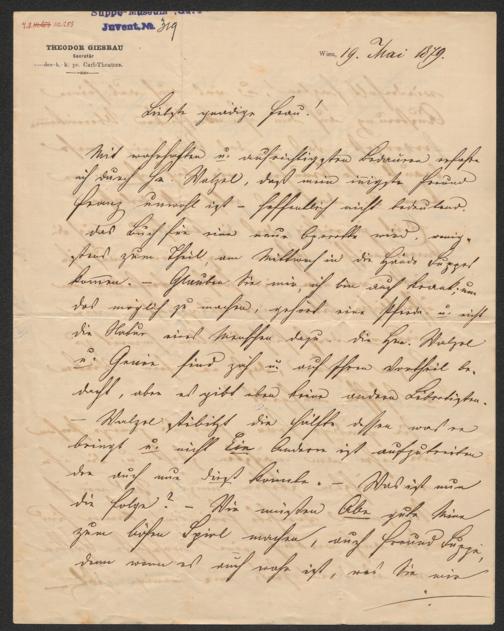 Suppé-Museum, Gars
Invent. № 319
THEODOR GIESRAU
Secretär
des k. k. pr. Carl-Theaters.
Wien, 19. Mai 1879.
Liebste gnädige Frau!
Mit wahrhaften u. aufrichtigsten Bedauern erfahre
ich durch H. Walzel, daß mein einziger Freund
Franz unwohl ist – hoffentlich nicht bedeutend.
Das Buch für eine neue Operette wird, wenig-
stens zum Theil, am Mittwoch in die Hände Suppés
kommen. – Glauben Sie mir, ich bin auch krank; um
das möglich zu machen, gehört eine Pferde u. nicht
die Natur eines Menschen dazu. Die Hrn. Walzel
u. Genée sind zäh u. auf Ihren Vortheil be-
dacht, aber es gibt eben keine andern Librettisten.
– Walzel stibitzt die Hälfte dessen was er
bringt u. nicht Ein Anderer ist aufzutreiben
der auch nur dies könnte. – Was ist nun
die Folge? – Wir müßen Alle gute Miene
zum bösen Spiel machen, auch Freund Suppé,
denn wenn es auch wahr ist, was Sie mir